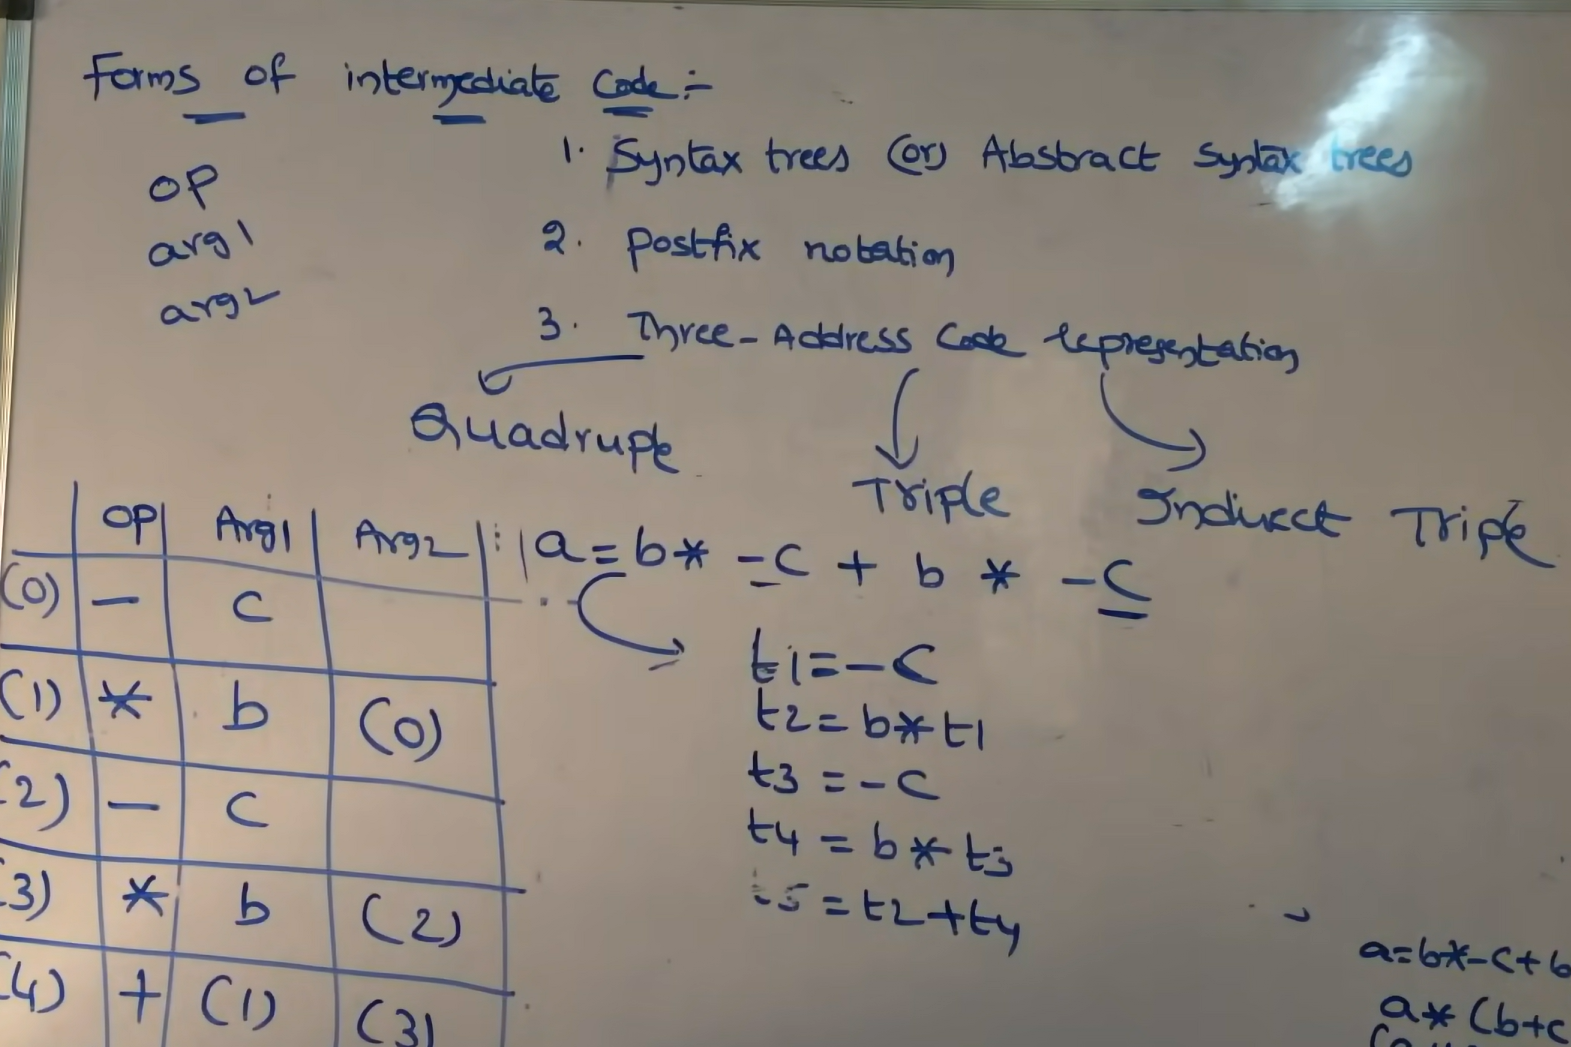 Forms of intermediate Code :-
1. Syntax trees (or) Abstract Syntax trees
OP
arg1
arg2
2. Postfix notation
3. Three-Address Code representation
Quadruple
Triple
Indirect Triple
OP Arg1 Arg2
(0) - c
(1) * b (0)
(2) - c
(3) * b (2)
(4) + (1) (3)
a = b * -c + b * -c
t1 = -c
t2 = b * t1
t3 = -c
t4 = b * t3
t5 = t2 + t4
a=b*-c+b
a*(b+c